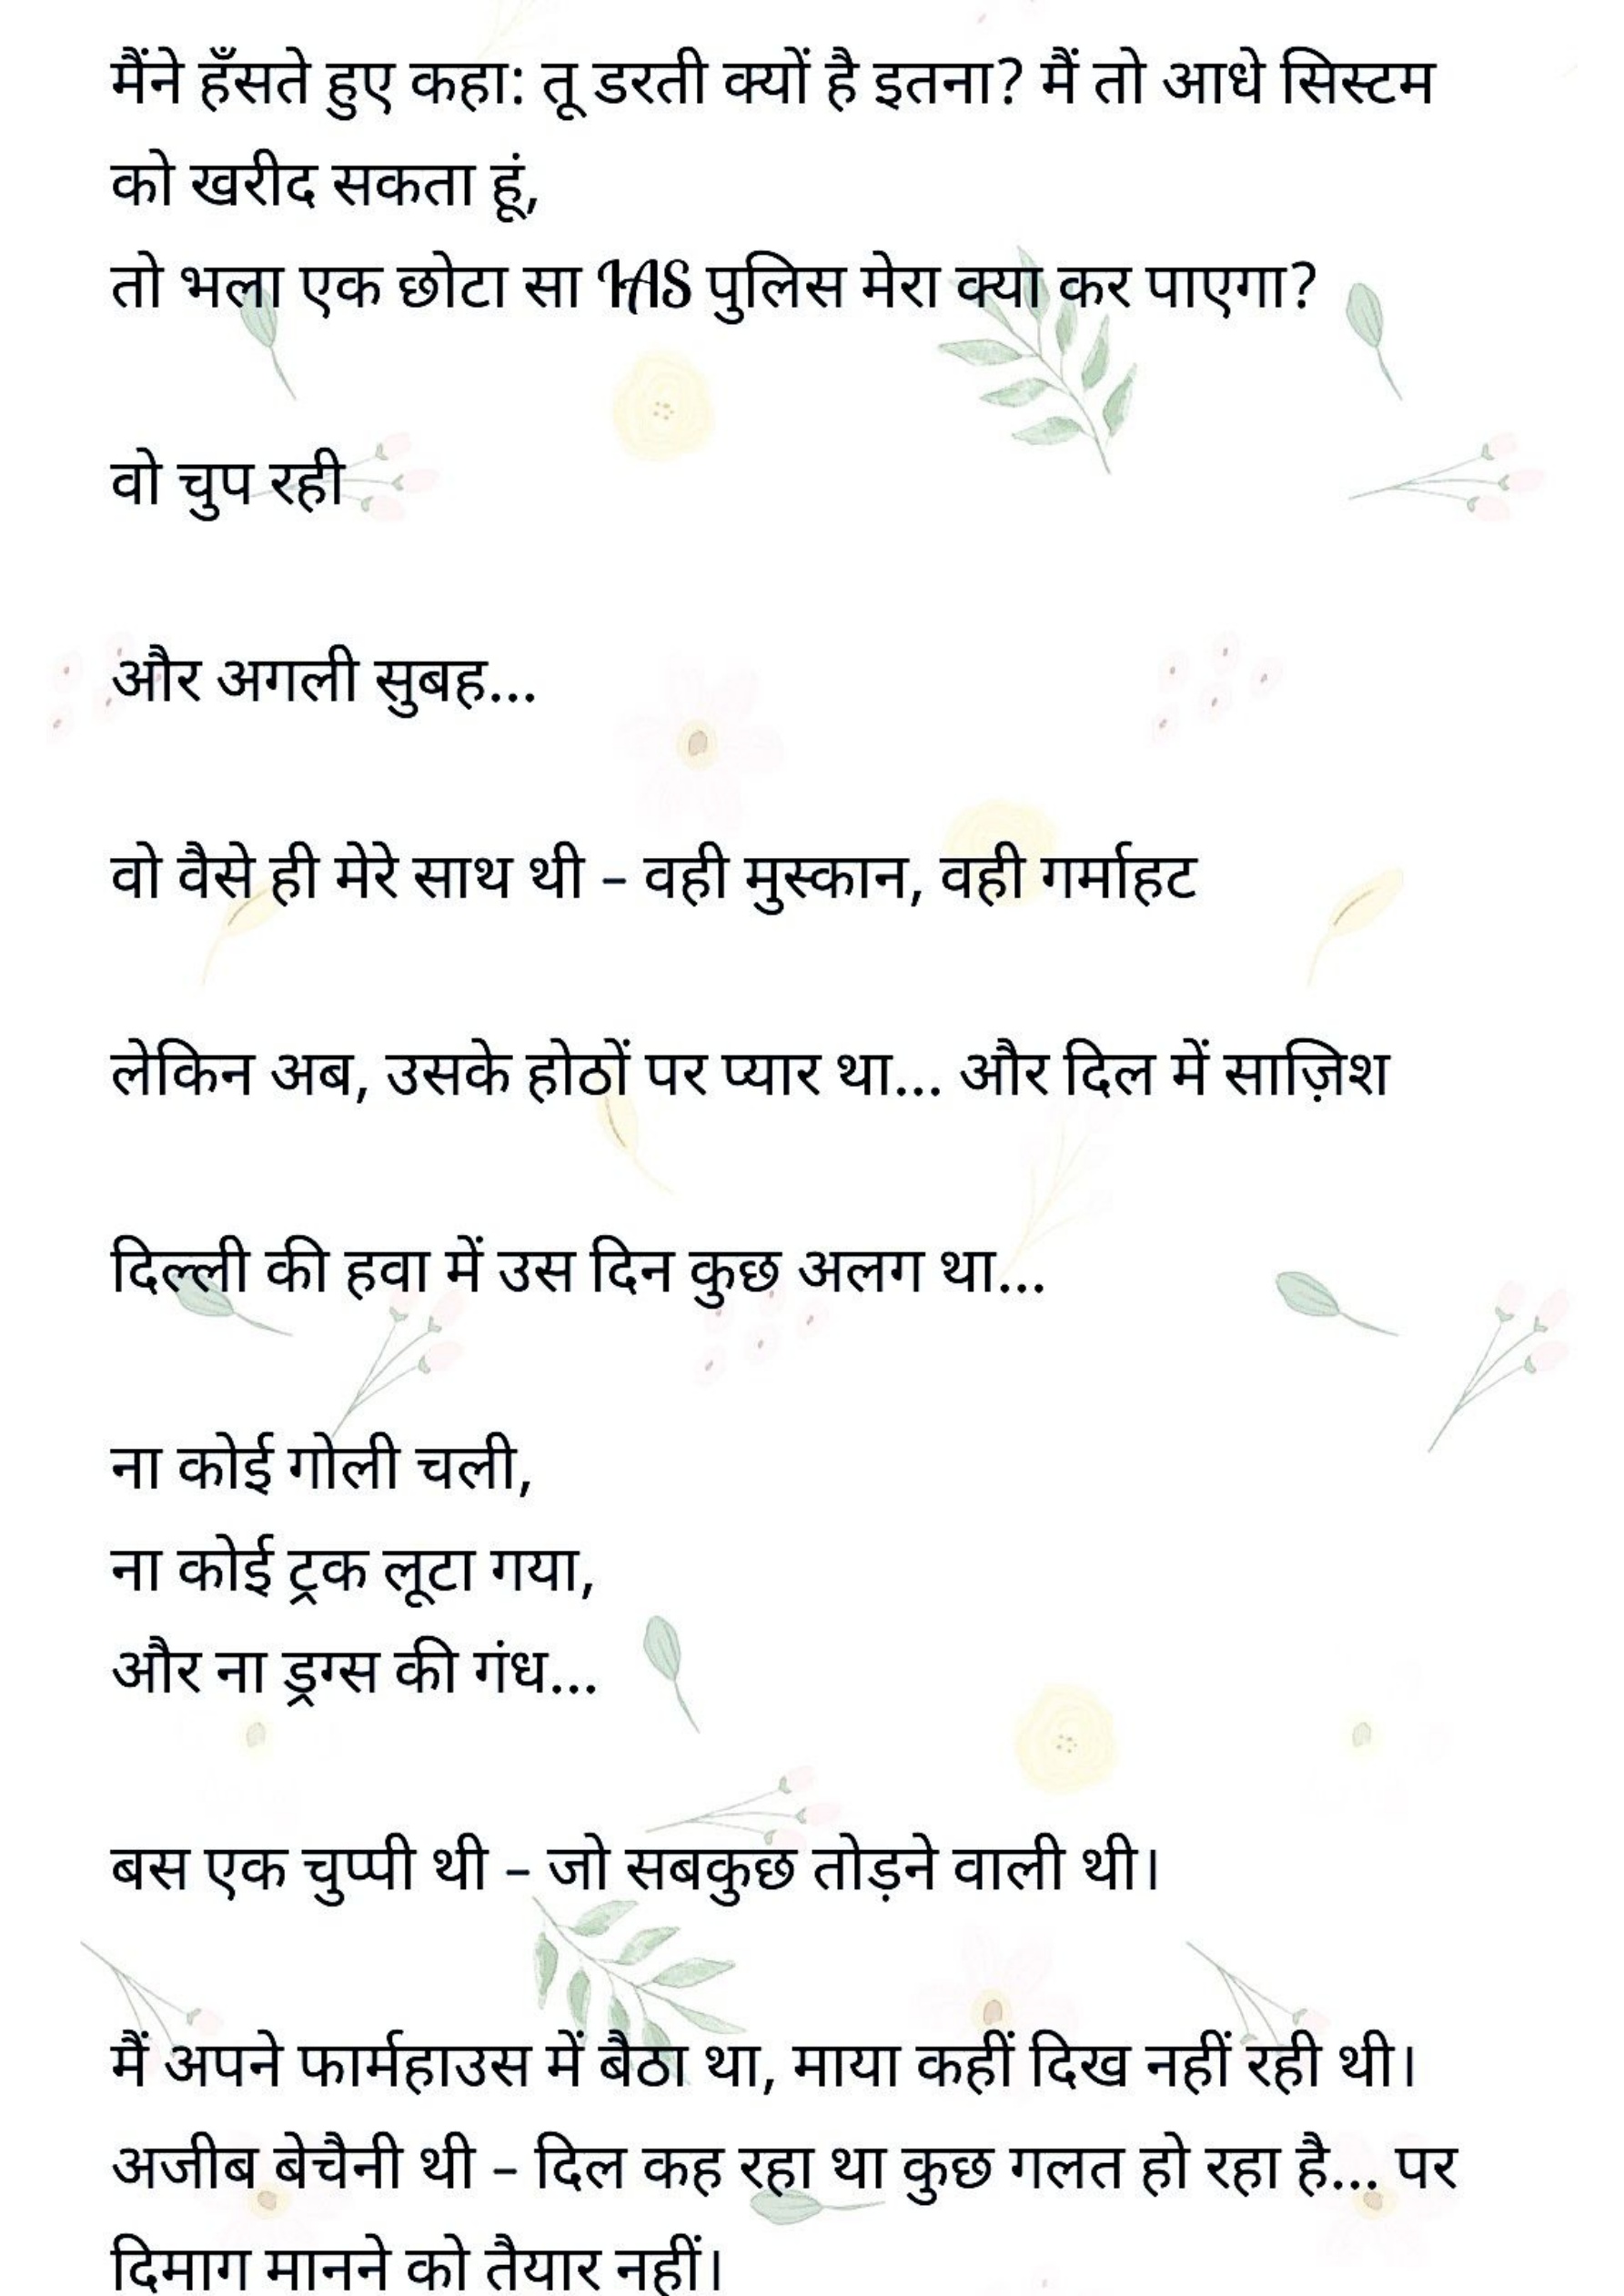 मैंने हँसते हुए कहा: तू डरती क्यों है इतना? मैं तो आधे सिस्टम
को खरीद सकता हूं,
तो भला एक छोटा सा IAS पुलिस मेरा क्या कर पाएगा?
वो चुप रही
और अगली सुबह...
वो वैसे ही मेरे साथ थी – वही मुस्कान, वही गर्माहट
लेकिन अब, उसके होठों पर प्यार था... और दिल में साज़िश
दिल्ली की हवा में उस दिन कुछ अलग था...
ना कोई गोली चली,
ना कोई ट्रक लूटा गया,
और ना ड्रग्स की गंध...
बस एक चुप्पी थी – जो सबकुछ तोड़ने वाली थी।
मैं अपने फार्महाउस में बैठा था, माया कहीं दिख नहीं रही थी।
अजीब बेचैनी थी – दिल कह रहा था कुछ गलत हो रहा है... पर
दिमाग मानने को तैयार नहीं।